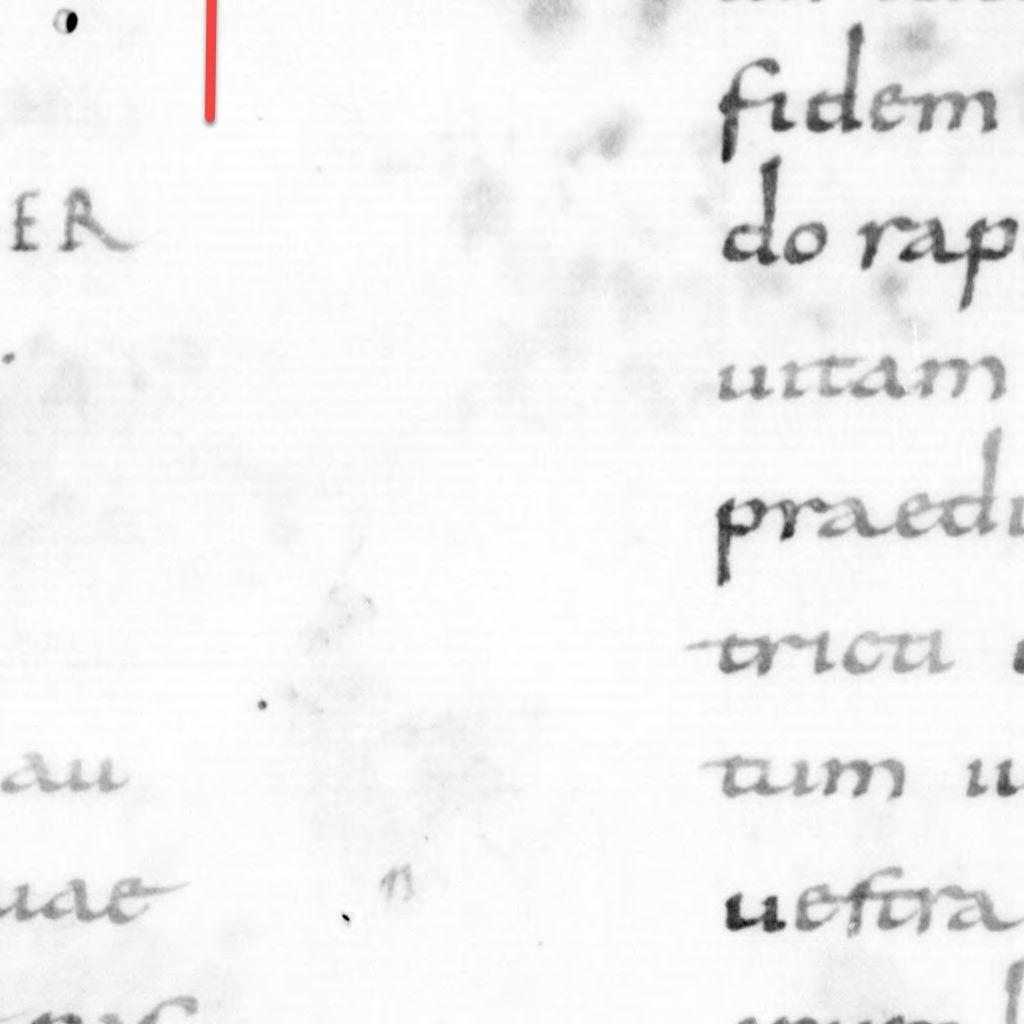 ER
au
uae
fidem
do rap
uitam
praedi
tricti
tum u
uestra